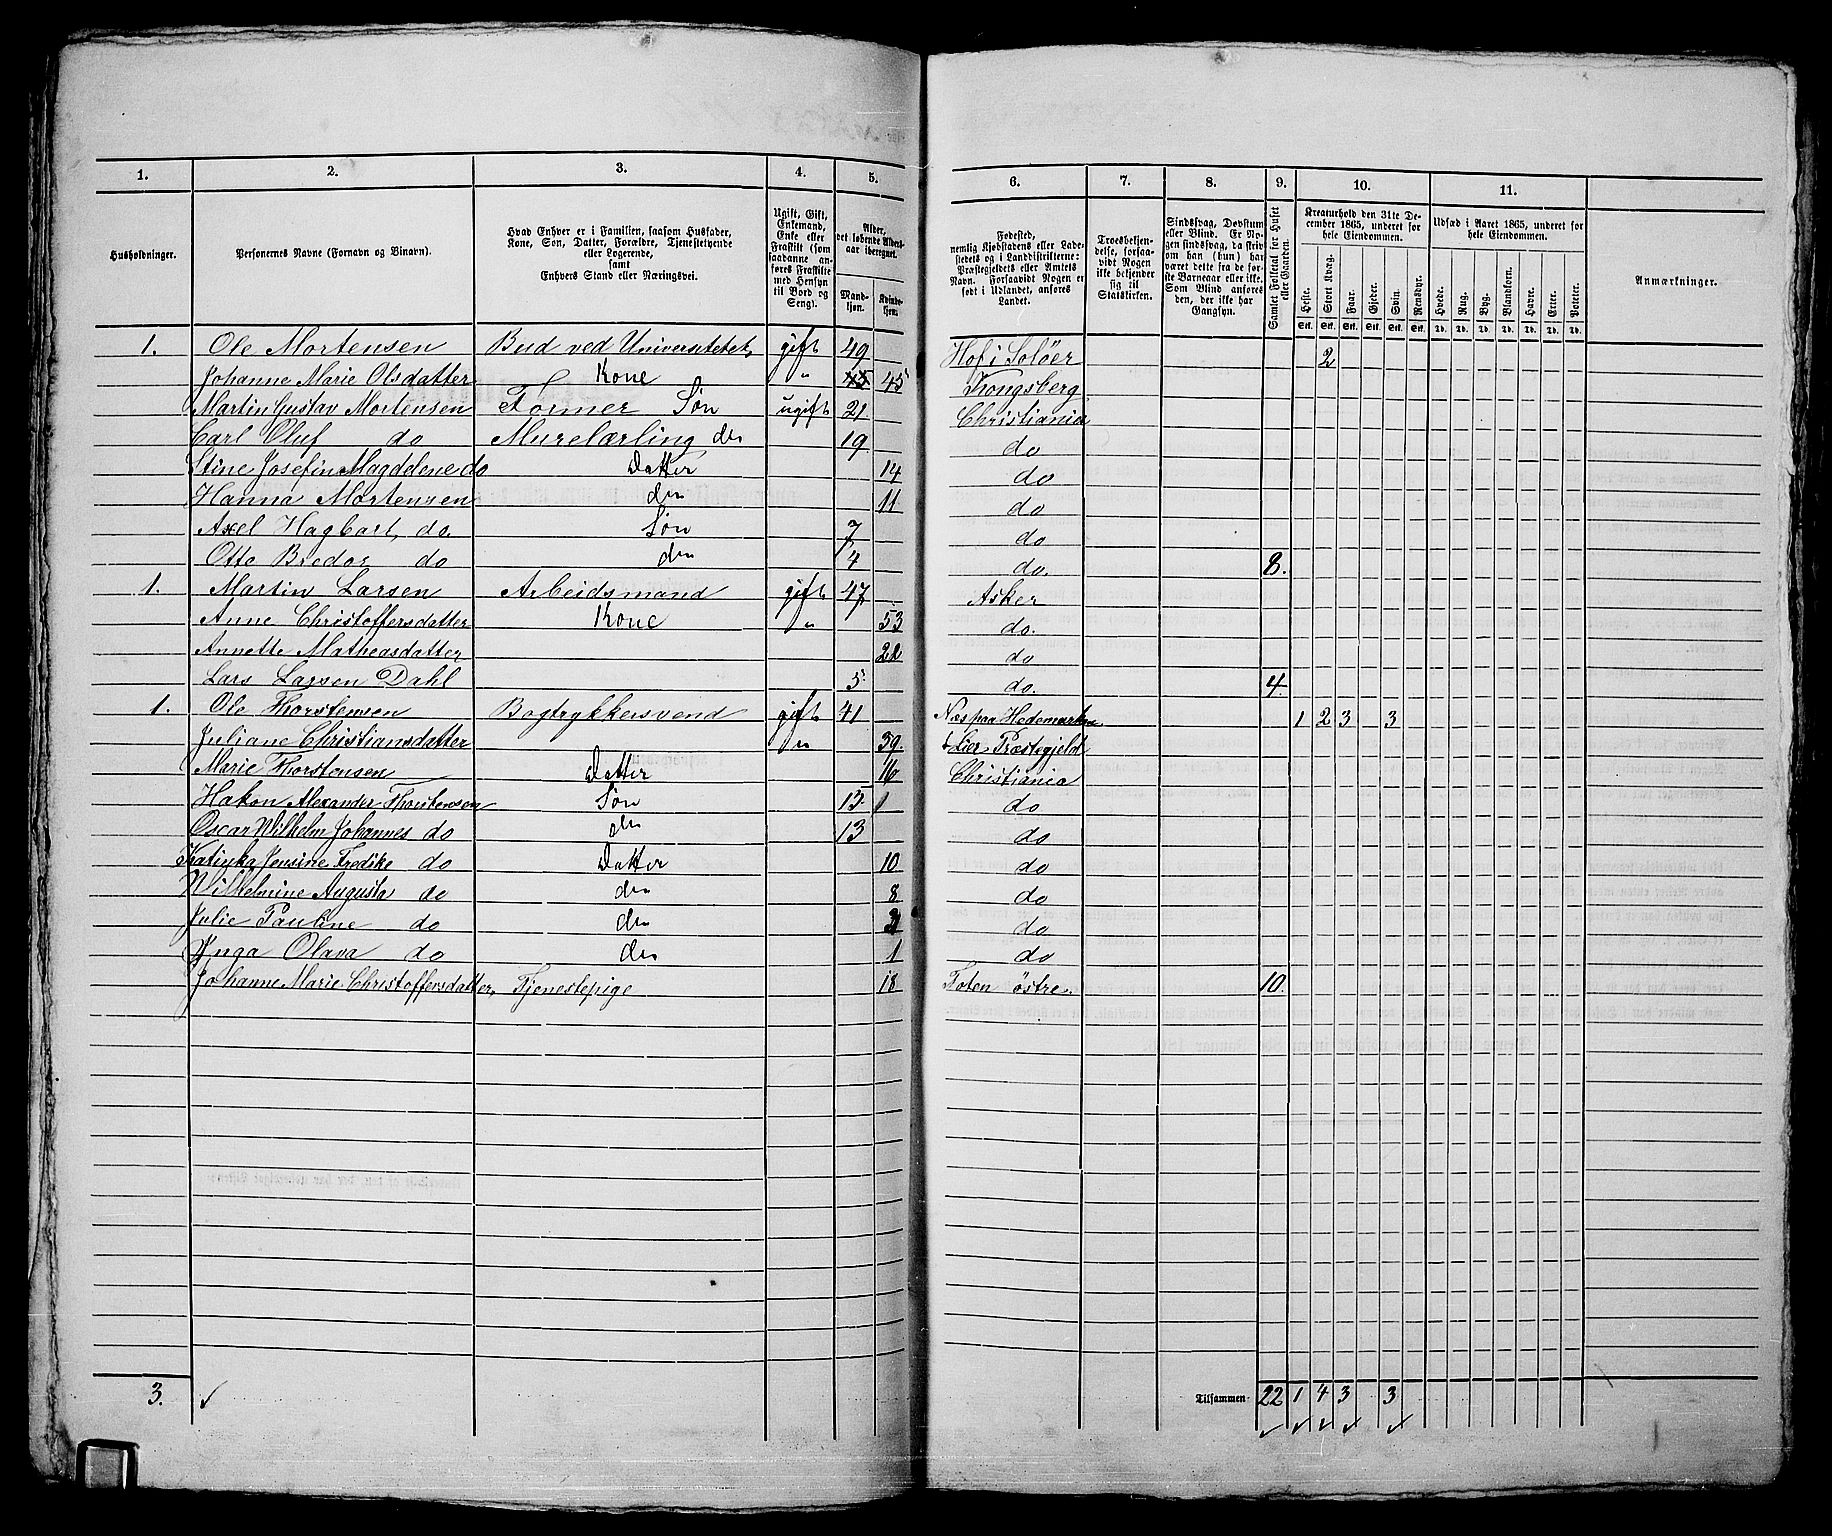 1. 2. 3. 4. 5. 6. 7. 8. 9. 10. 11.
Husholdninger.
Personernes Navne (Fornavn og Binavn).
Hvad Enhver er i Familien, saasom Husfader,
Kone, Søn, Datter, Forældre, Tjenestetyende
eller Logerende,
samt
Enhvers Stand eller Næringsvei.
Ugift, Gift,
Enkemand,
Enke eller
Fraskilt (som
saadanne an-
føres Fraskilte
med Hensyn
til Bord og
Seng).
Alder,
det løbende Alders-
aar iberegnet.
Mand-
kjøn.
Kvinde-
kjøn.
Fødested,
nemlig Kjøbstadens eller Lade-
stedets og i Landdistrikterne:
Præstegjeldets eller Amtets
Navn. Forsaavidt Nogen er
født i Udlandet, anføres
Landet.
Troesbekjen-
delse, forsaa-
vidt Nogen
ikke bekjender
sig til
Statskirken.
Sindssvag, Døvstum
eller Blind. Er No-
gen sindssvag, da skriv
om han (hun) har
været dette fra de før-
ste Barneaar eller ikke.
Som Blind anføres
den, der ikke har
Gangsyn.
Samlet Folketal for Huset
eller Gaarden.
Kreaturhold den 31te De-
cember 1865, underet for
hele Eiendommen.
Heste. Stort Kvæg. Faar. Gjeder. Svin. Rensdyr.
Stk. Stk. Stk. Stk. Stk. Stk.
Udsæd i Aaret 1865, underet for
hele Eiendommen.
Hvede. Rug. Byg. Blandkorn. Havre. Erter. Poteter.
Td. Td. Td. Td. Td. Td. Td.
Anmærkninger.
1. Ole Mortensen Bud ved Universitetet, gift 49 Hof i Solöer 2
Johanne Marie Olsdatter Kone " 45 45 Kongsberg
Martin Gustav Mortensen Former Søn ugift 21 Christiania
Carl Oluf do Murelærling do 19 do
Stine Josefin Magdelene do Datter 14 do
Hanna Mortensen do 11 do
Axel Hagbart, do. Søn 7 do
Otto Bredor do do 4 do. 8.
1. Martin Larsen Arbeidsmand gift 47 Asker
Anne Christoffersdatter Kone " 53 do.
Annette Matheasdatter 22 do
Lars Larsen Dahl 5 do. 4
1. Ole Thorstensen Bogtrykkersvend gift 41 Næs paa Hedemarken 1 2 3 3
Juliane Christiansdatter " 39. Lier Præstegjeld
Marie Thorstensen Datter 16 Christiania
Hakon Alexander Thorstensen Søn 13 do
Oscar Wilhelm Johannes do do 13 do
Katinka Jensine Fredike do Datter 10 do
Wilhelmine Augusta do do 8 do
Julie Pauline do do do
Ynga Olava do do 1 do
Johanne Marie Christoffersdatter, Tjenestepige 18 Toten östre. 10.
3. Tilsammen 22 1 4 3 3